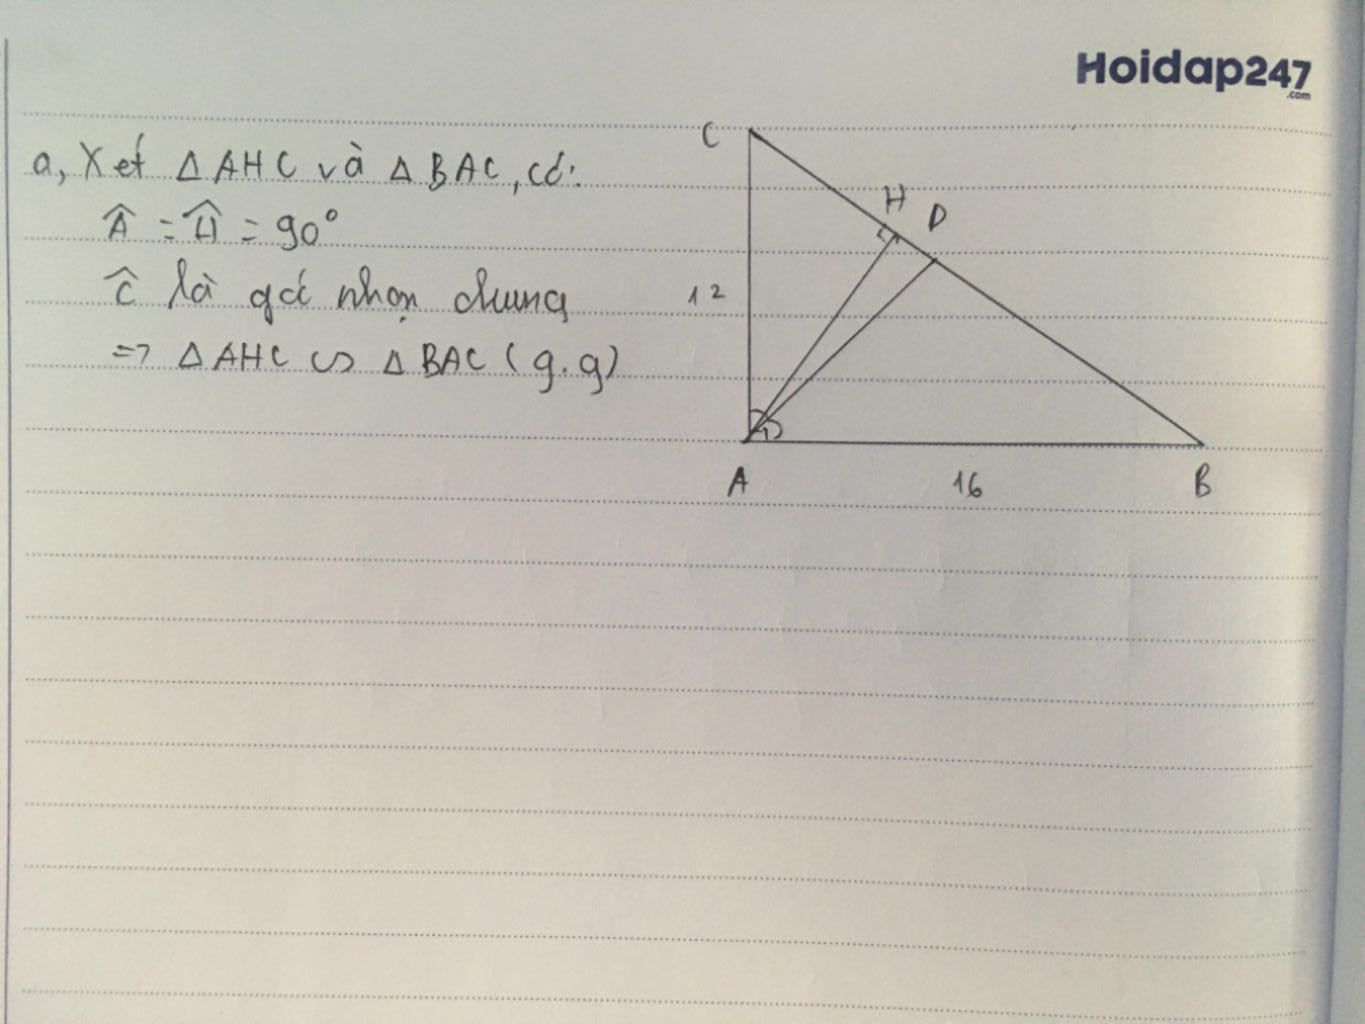 Hoidap247
.com
a, Xét Δ AHC và Δ BAC, có:
Â = Ĥ = 90°
Ĉ là góc nhọn chung
=> Δ AHC ∽ Δ BAC (g.g)
C
H
D
12
1
A
16
B